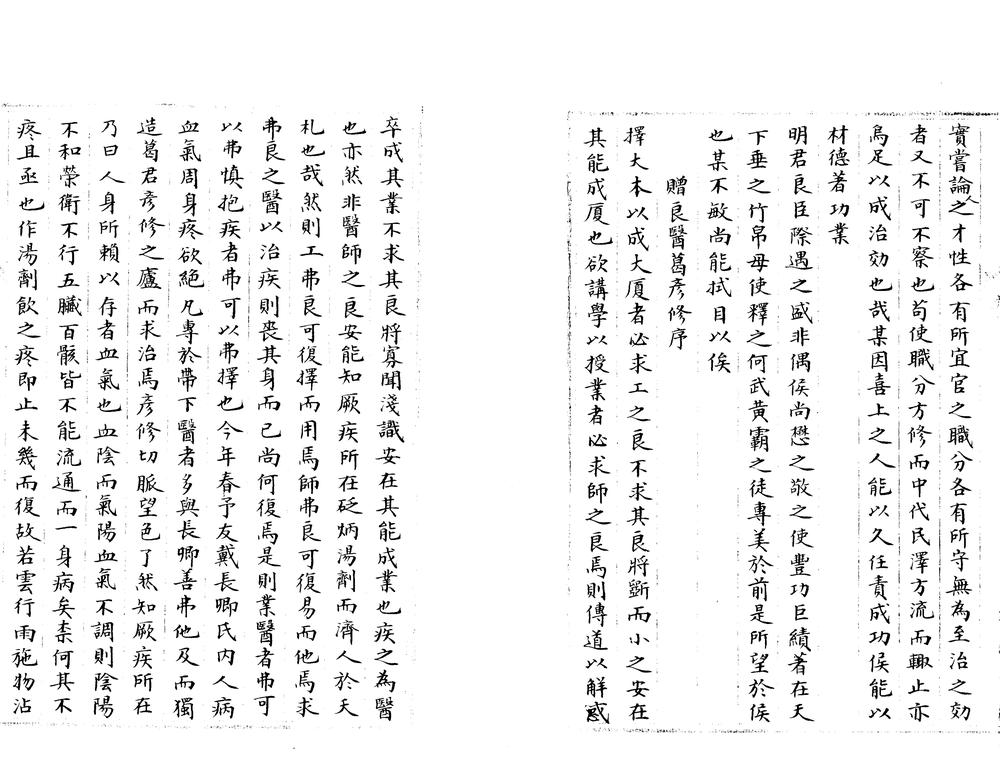 實嘗論人之才性各有所宜官之職分各有所守無為至治之効
者又不可不察也苟使職分方修而中代民澤方流而輙止亦
烏足以成治効也哉某因喜上之人能以久任責成功侯能以
材德著功業
明君良臣際遇之盛非偶侯尚懋之敬之使豐功巨績著在天
下垂之竹帛毋使釋之何武黃霸之徒專美於前是所望於侯
也某不敏尚能拭目以俟
贈良醫葛彥修序
擇大本以成大厦者必求工之良不求其良將斲而小之安在
其能成厦也欲講學以授業者必求師之良焉則傳道以解惑
卒成其業不求其良將寡聞淺識安在其能成業也疾之為醫
也亦然非醫師之良安能知厥疾所在砭炳湯劑而濟人於夭
札也哉然則工弗良可復擇而用焉師弗良可復易而他焉求
弗良之醫以治疾則喪其身而已尚何復焉是則業醫者弗可
以弗慎抱疾者弗可以弗擇也今年春予友戴長卿氏内人病
血氣周身疼欲絕凡專於帶下醫者多與長卿善弗他及而獨
造葛君彥修之廬而求治焉彥修切脈望色了然知厥疾所在
乃曰人身所賴以存者血氣也血陰而氣陽血氣不調則陰陽
不和榮衛不行五臟百骸皆不能流通而一身病矣柰何其不
疼且亟也作湯劑飲之疼即止未幾而復故若雲行雨施物沾